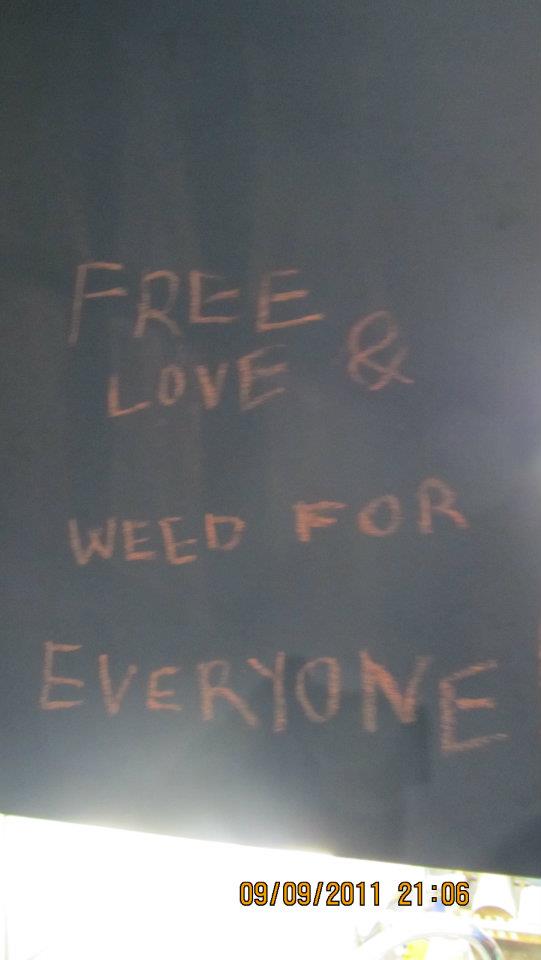 FREE
LOVE &
WEED FOR
EVERYONE
09/09/2011 21:06